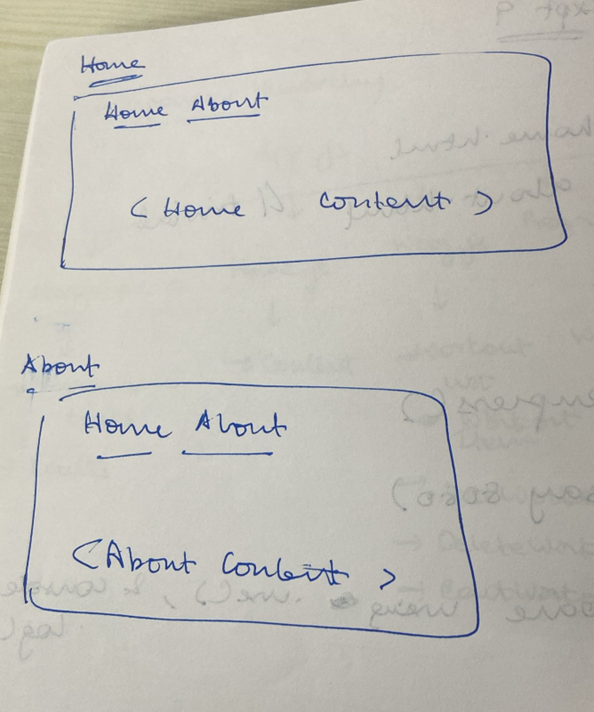 Home
Home About
< Home Content >
About
Home About
< About Content >